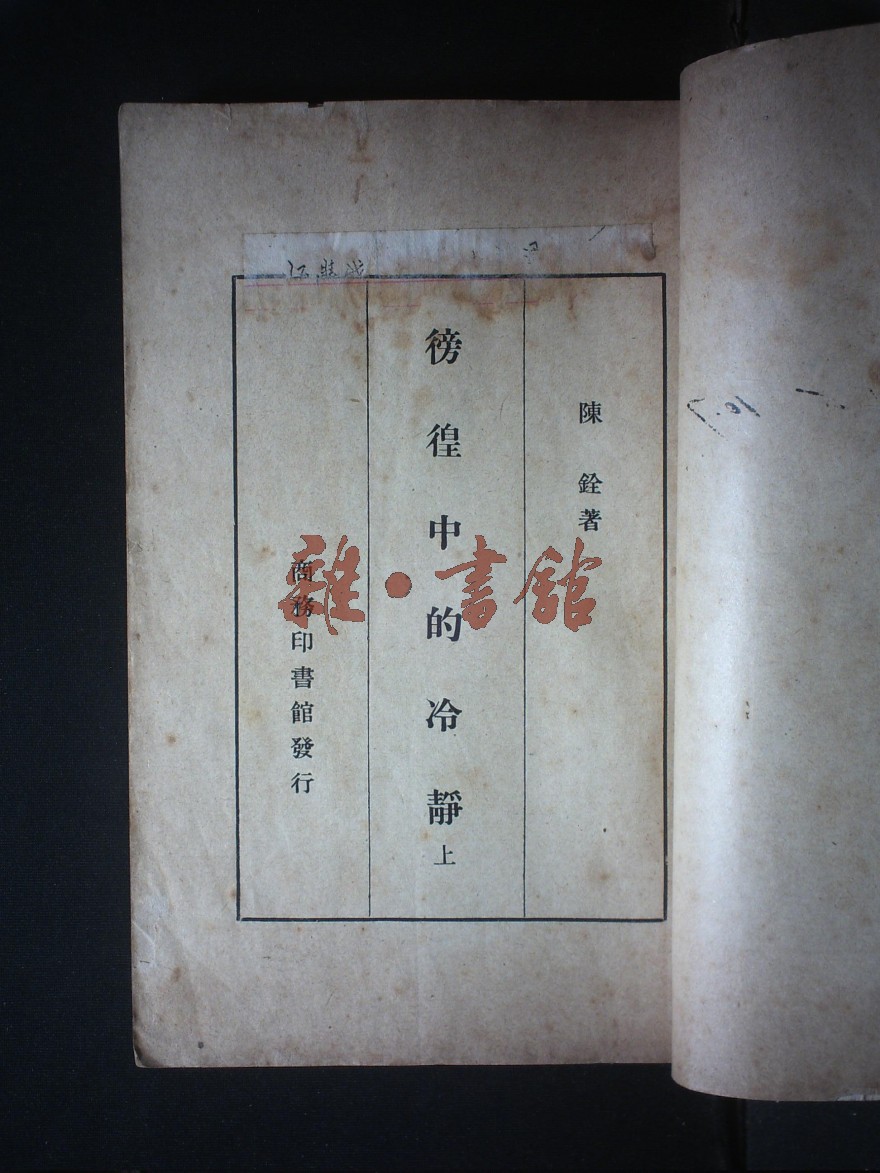 陳銓著
徬徨中的冷靜 上
商務印書館發行
雜·書館